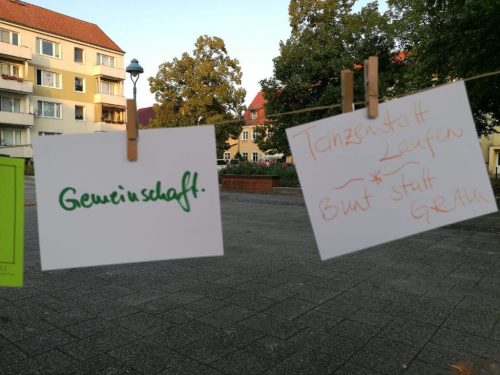 Gemeinschaft.
Tanzen statt
Laufen
Bunt statt
GRAU